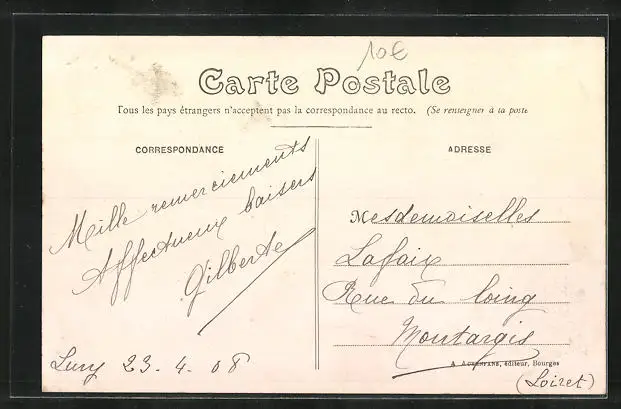 10€
Carte Postale
Tous les pays étrangers n'acceptent pas la correspondance au recto. (Se renseigner à la poste
CORRESPONDANCE
ADRESSE
Mille remerciements
Affectueux baisers
Gilberte
Lury 23-4-08
Mesdemoiselles
Lafaix
Rue du loing
Montargis
éditeur, Bourges
(Loiret)